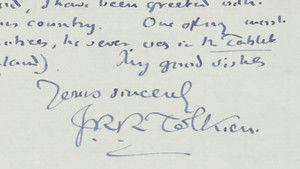 I have been greeted with
country. One of my worst
however, was in the Tablet
land). My good wishes
Yours sincerely
JRR Tolkien.